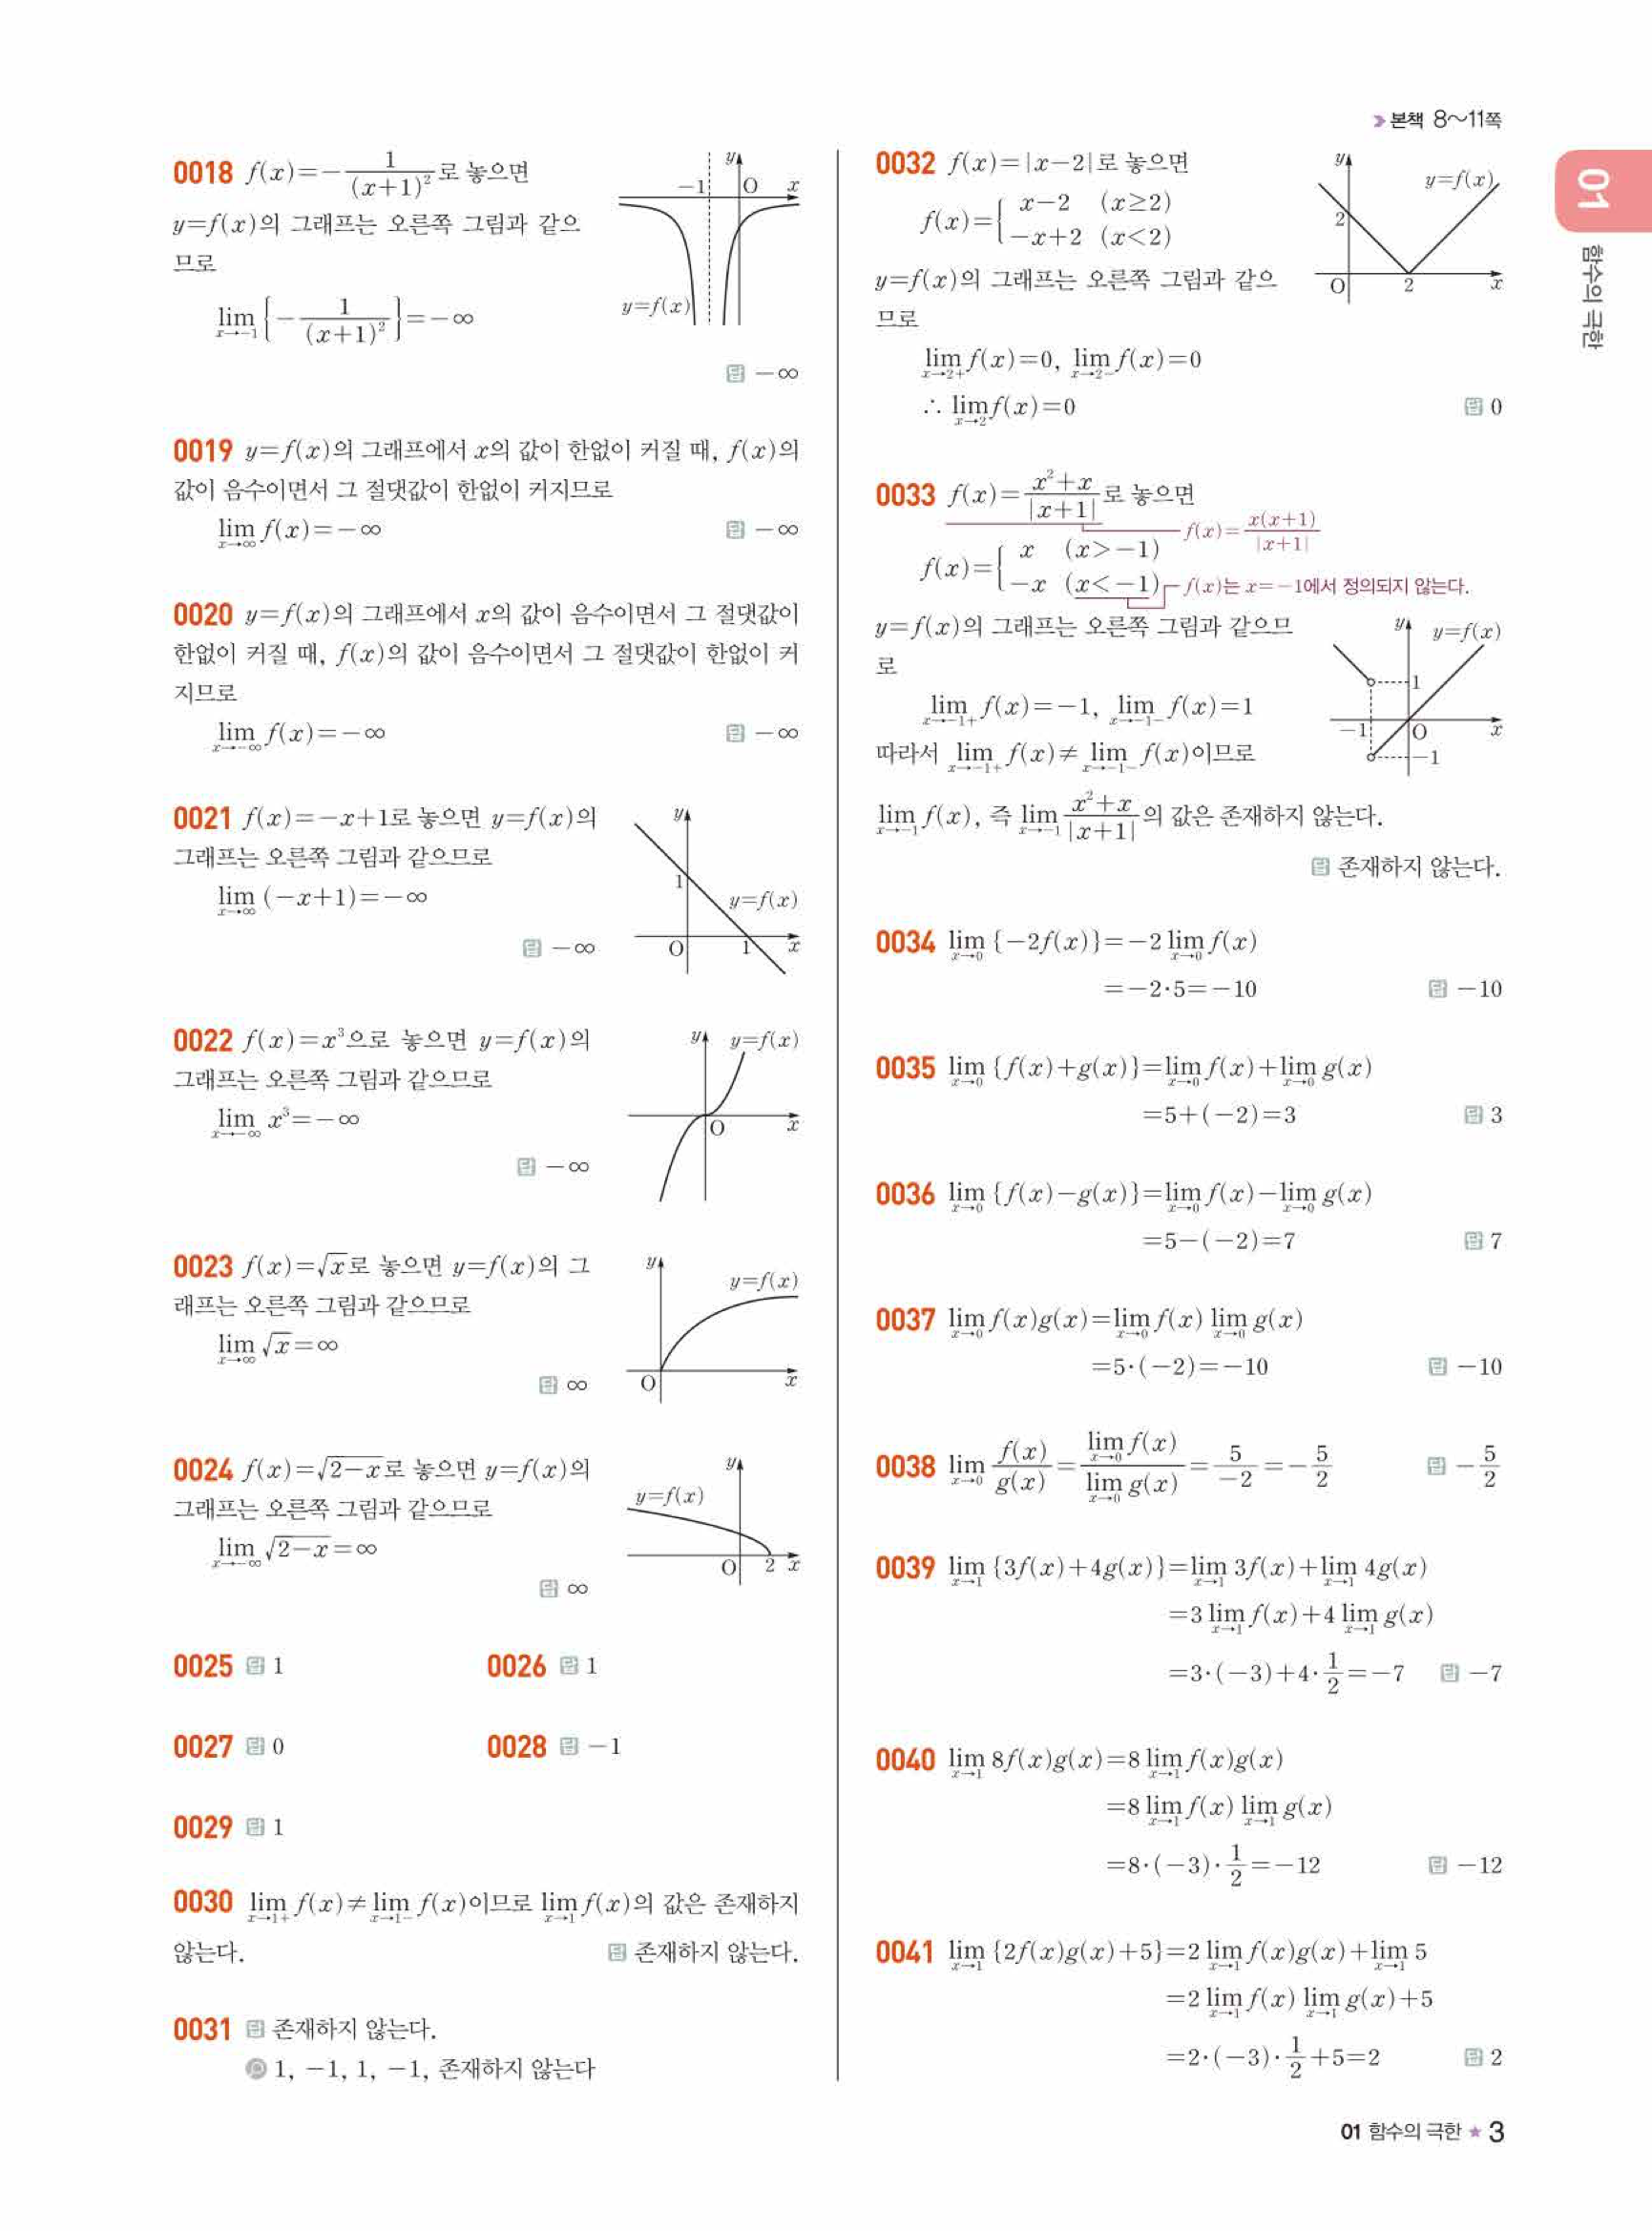 본책 8~11쪽
01
함수의 극한
0018 f(x)=-1/(x+1)²로 놓으면
y=f(x)의 그래프는 오른쪽 그림과 같으
므로
lim_{x→-1} {-1/(x+1)²}=-∞
답 -∞
y
-1 O x
y=f(x)
0019 y=f(x)의 그래프에서 x의 값이 한없이 커질 때, f(x)의
값이 음수이면서 그 절댓값이 한없이 커지므로
lim_{x→∞} f(x)=-∞ 답 -∞
0020 y=f(x)의 그래프에서 x의 값이 음수이면서 그 절댓값이
한없이 커질 때, f(x)의 값이 음수이면서 그 절댓값이 한없이 커
지므로
lim_{x→-∞} f(x)=-∞ 답 -∞
0021 f(x)=-x+1로 놓으면 y=f(x)의
그래프는 오른쪽 그림과 같으므로
lim_{x→∞} (-x+1)=-∞
답 -∞
y
1
y=f(x)
O 1 x
0022 f(x)=x³으로 놓으면 y=f(x)의
그래프는 오른쪽 그림과 같으므로
lim_{x→-∞} x³=-∞
답 -∞
y y=f(x)
O x
0023 f(x)=√x로 놓으면 y=f(x)의 그
래프는 오른쪽 그림과 같으므로
lim_{x→∞} √x=∞
답 ∞
y
y=f(x)
O x
0024 f(x)=√(2-x)로 놓으면 y=f(x)의
그래프는 오른쪽 그림과 같으므로
lim_{x→-∞} √(2-x)=∞
답 ∞
y
y=f(x)
O 2 x
0025 답 1 0026 답 1
0027 답 0 0028 답 -1
0029 답 1
0030 lim_{x→1+} f(x)≠lim_{x→1-} f(x)이므로 lim_{x→1} f(x)의 값은 존재하지
않는다. 답 존재하지 않는다.
0031 답 존재하지 않는다.
1, -1, 1, -1, 존재하지 않는다
0032 f(x)=|x-2|로 놓으면
f(x)={ x-2 (x≥2)
-x+2 (x<2)
y=f(x)의 그래프는 오른쪽 그림과 같으
므로
lim_{x→2+} f(x)=0, lim_{x→2-} f(x)=0
∴ lim_{x→2} f(x)=0 답 0
y
y=f(x)
2
O 2 x
0033 f(x)=(x²+x)/|x+1|로 놓으면
f(x)=x(x+1)/|x+1|
f(x)={ x (x>-1)
-x (x<-1) f(x)는 x=-1에서 정의되지 않는다.
y=f(x)의 그래프는 오른쪽 그림과 같으므
로
lim_{x→-1+} f(x)=-1, lim_{x→-1-} f(x)=1
따라서 lim_{x→-1+} f(x)≠lim_{x→-1-} f(x)이므로
lim_{x→-1} f(x), 즉 lim_{x→-1} (x²+x)/|x+1|의 값은 존재하지 않는다.
답 존재하지 않는다.
y y=f(x)
1
-1 O x
-1
0034 lim_{x→0} {-2f(x)}=-2 lim_{x→0} f(x)
=-2·5=-10 답 -10
0035 lim_{x→0} {f(x)+g(x)}=lim_{x→0} f(x)+lim_{x→0} g(x)
=5+(-2)=3 답 3
0036 lim_{x→0} {f(x)-g(x)}=lim_{x→0} f(x)-lim_{x→0} g(x)
=5-(-2)=7 답 7
0037 lim_{x→0} f(x)g(x)=lim_{x→0} f(x) lim_{x→0} g(x)
=5·(-2)=-10 답 -10
0038 lim_{x→0} f(x)/g(x)=lim_{x→0} f(x)/lim_{x→0} g(x)=5/-2=-5/2 답 -5/2
0039 lim_{x→1} {3f(x)+4g(x)}=lim_{x→1} 3f(x)+lim_{x→1} 4g(x)
=3 lim_{x→1} f(x)+4 lim_{x→1} g(x)
=3·(-3)+4·1/2=-7 답 -7
0040 lim_{x→1} 8f(x)g(x)=8 lim_{x→1} f(x)g(x)
=8 lim_{x→1} f(x) lim_{x→1} g(x)
=8·(-3)·1/2=-12 답 -12
0041 lim_{x→1} {2f(x)g(x)+5}=2 lim_{x→1} f(x)g(x)+lim_{x→1} 5
=2 lim_{x→1} f(x) lim_{x→1} g(x)+5
=2·(-3)·1/2+5=2 답 2
01 함수의 극한 ★ 3